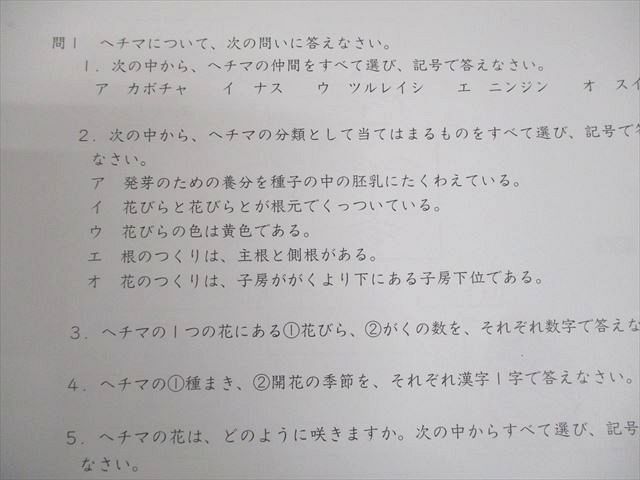 問1　ヘチマについて、次の問いに答えなさい。
1．次の中から、ヘチマの仲間をすべて選び、記号で答えなさい。
ア　カボチャ　　イ　ナス　　ウ　ツルレイシ　　エ　ニンジン　　オ　スイ
2．次の中から、ヘチマの分類として当てはまるものをすべて選び、記号で答
なさい。
ア　発芽のための養分を種子の中の胚乳にたくわえている。
イ　花びらと花びらとが根元でくっついている。
ウ　花びらの色は黄色である。
エ　根のつくりは、主根と側根がある。
オ　花のつくりは、子房ががくより下にある子房下位である。
3．ヘチマの1つの花にある①花びら、②がくの数を、それぞれ数字で答えな
4．ヘチマの①種まき、②開花の季節を、それぞれ漢字1字で答えなさい。
5．ヘチマの花は、どのように咲きますか。次の中からすべて選び、記号
なさい。